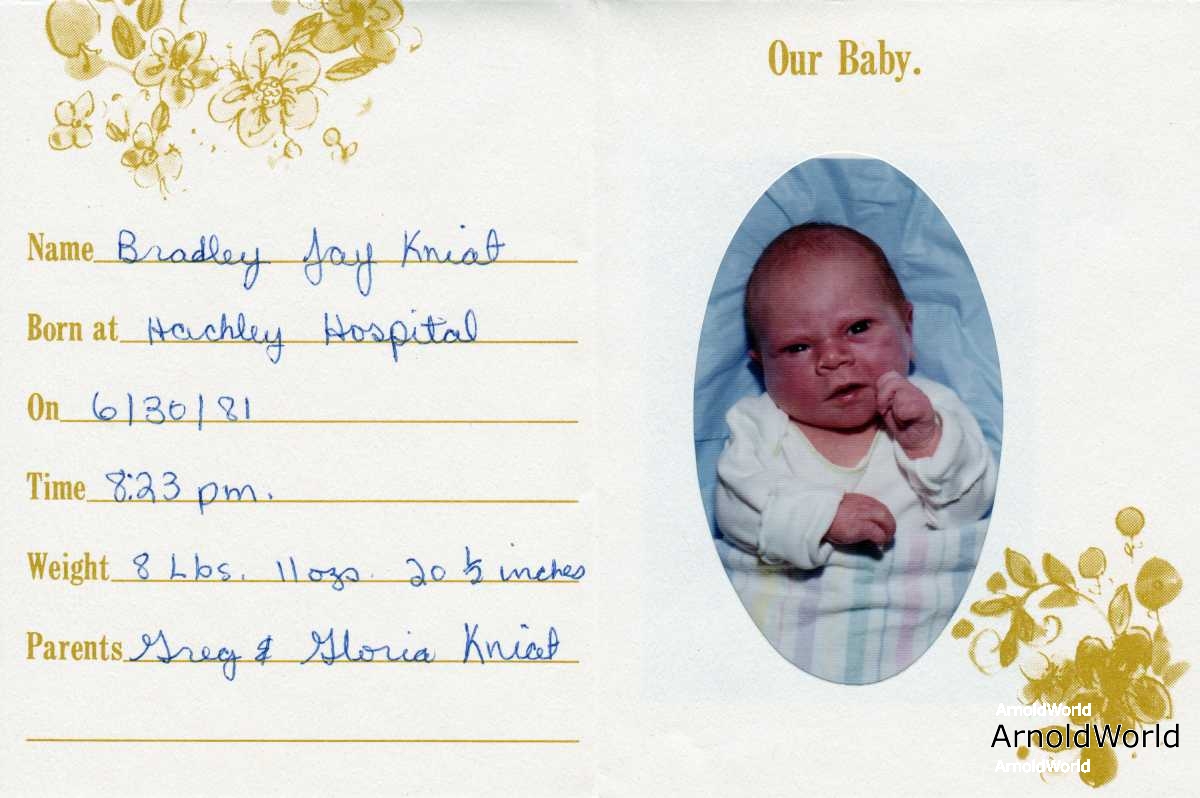 Our Baby.
Name Bradley Jay Kniat
Born at Hachley Hospital
On 6/30/81
Time 8:23 pm.
Weight 8 Lbs. 11 ozs. 20 ½ inches
Parents Greg & Gloria Kniat
ArnoldWorld
ArnoldWorld
ArnoldWorld